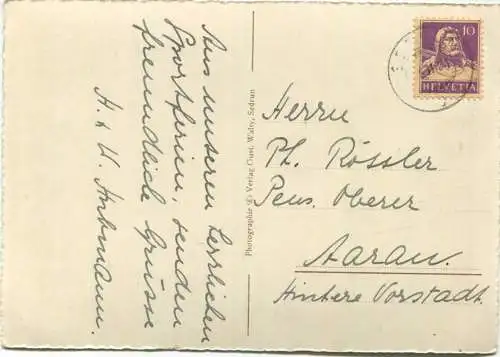 Aus unseren herrlichen
Sportferien, senden
freundliche Grüsse
H. & W.
Photographie & Verlag Gust. Walty, Sedrun
10
HELVETIA
Herrn
Ph. Rössler
Pens. Oberer
Aarau.
Hintere Vorstadt.